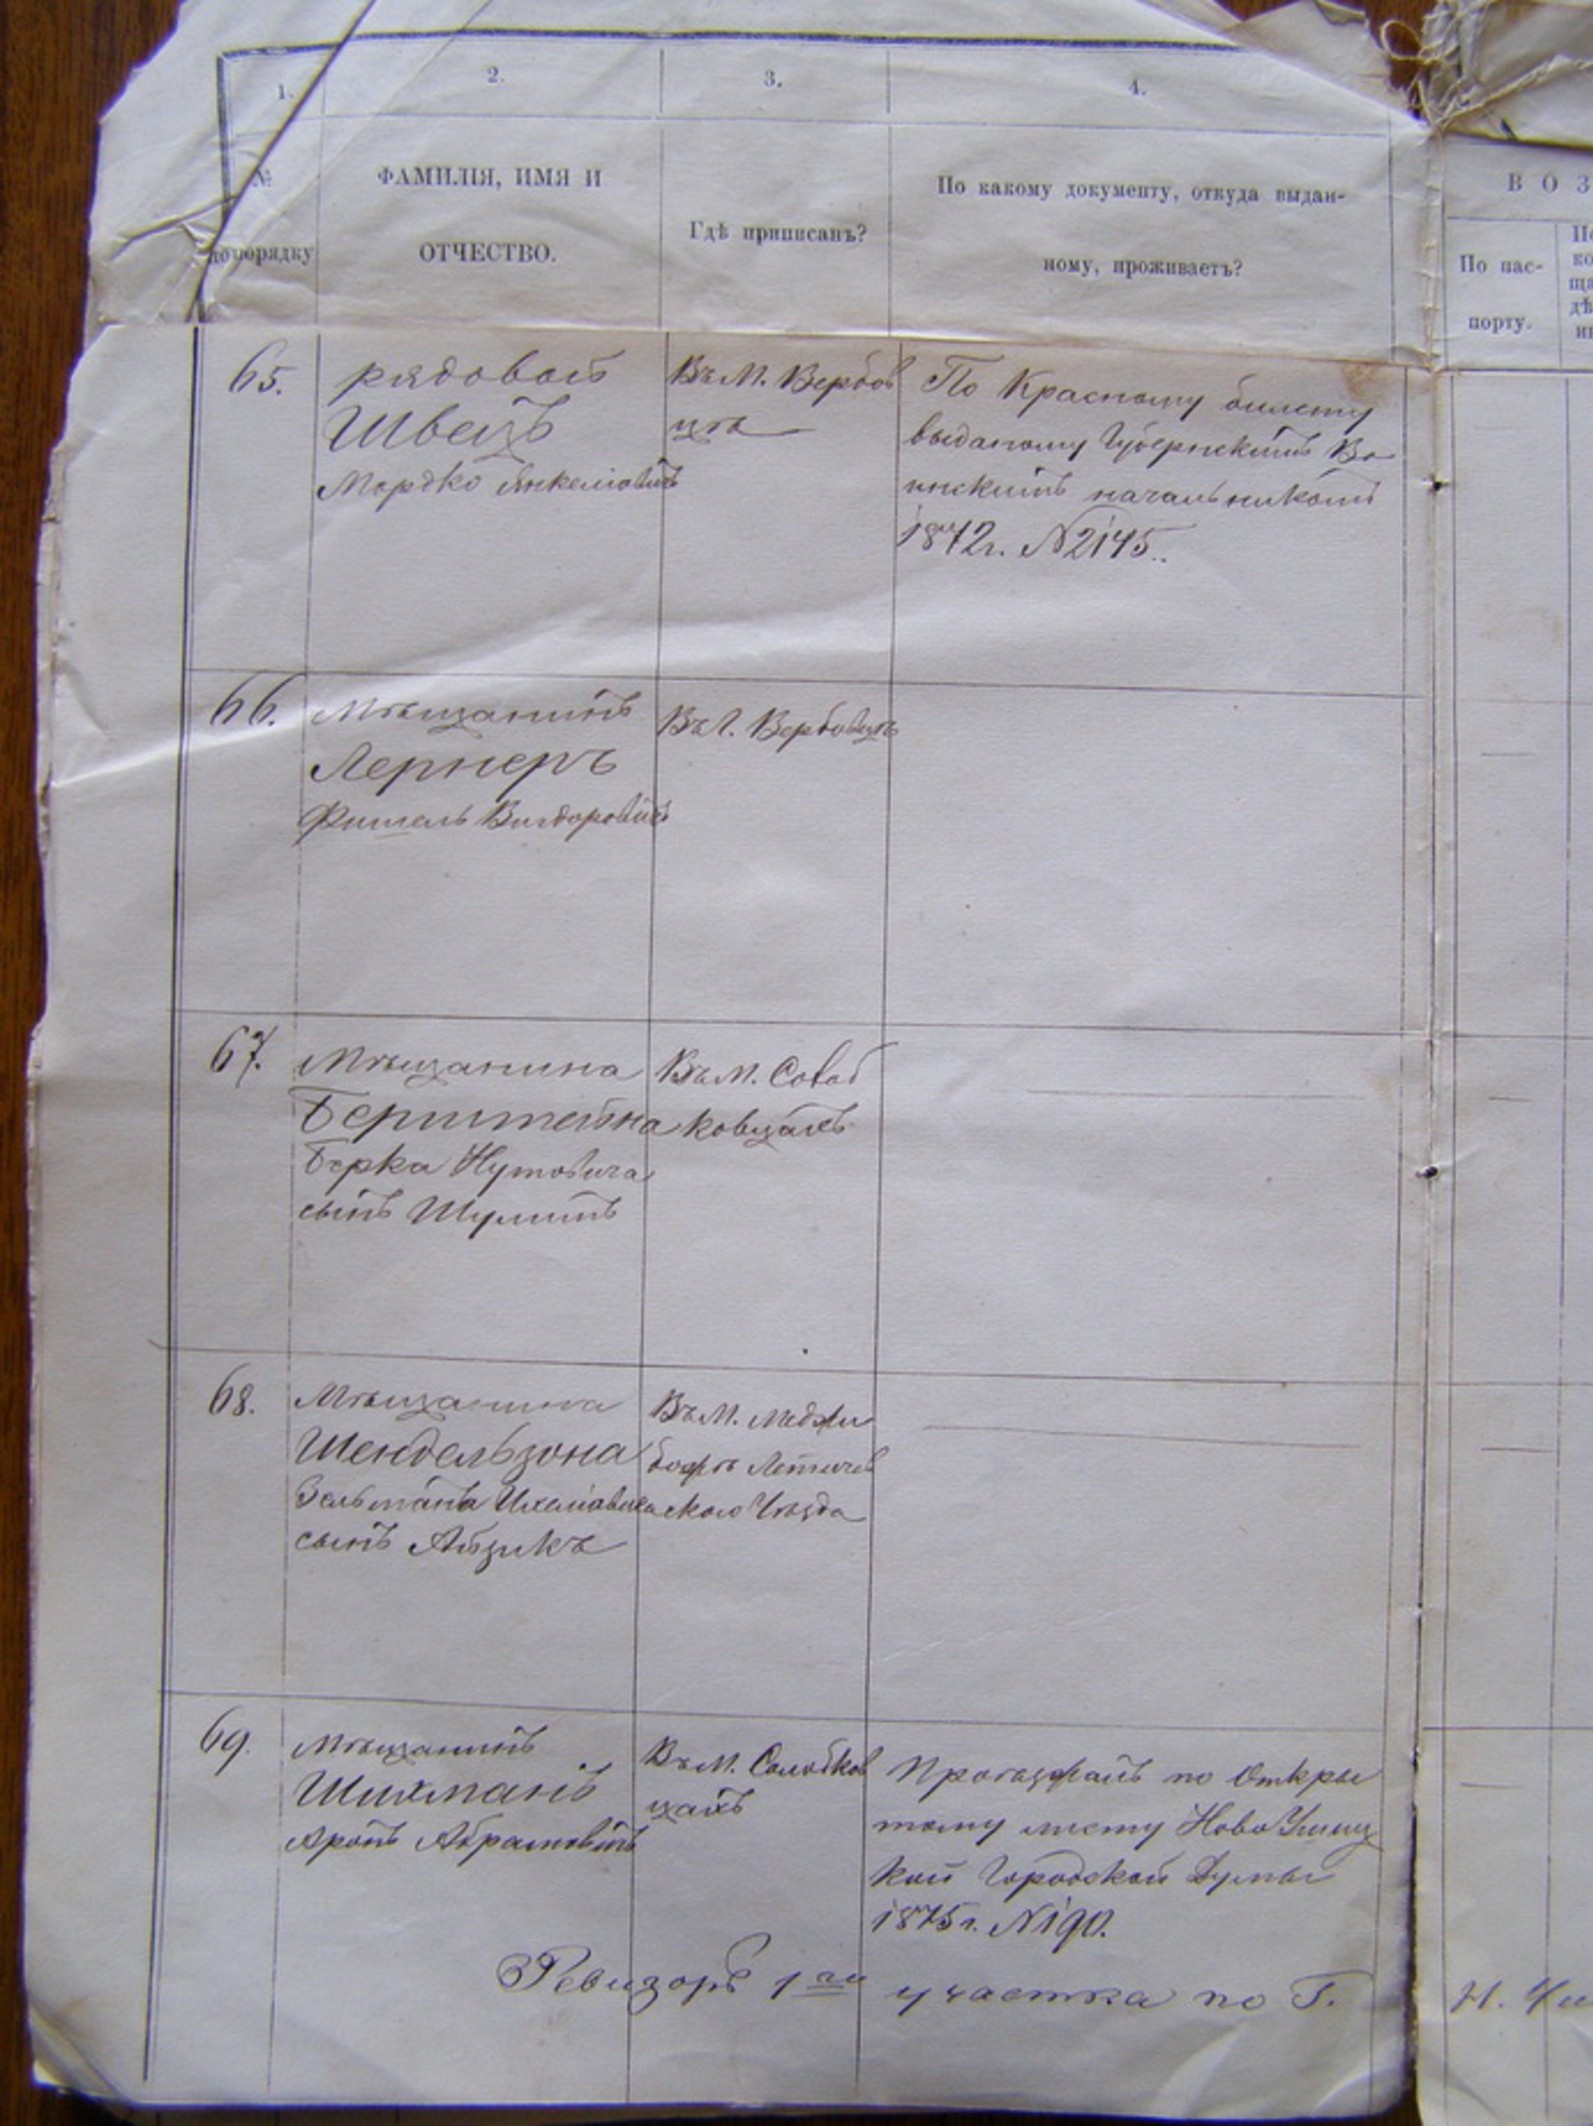 1.
2.
3.
4.
№
по порядку
ФАМИЛІЯ, ИМЯ И
ОТЧЕСТВО.
Гдѣ приписанъ?
По какому документу, откуда выдан-
ному, проживаетъ?
В О З
По пас-
порту.
65.
рядовой
Швецъ
Мордко Янкелiовичъ
Въ М. Вербов
цѣ
По Красному билету
выданому Губернскимъ Во
инскимъ начальникомъ
1872г. N2145.
66.
Мѣщанинъ
Лернеръ
Фишель Вигдоровичъ
Въ Вербовцѣ
67.
Мѣщанина
Бернштейна
Берка Нутовича
сынъ Шулимъ
Въ М.
ковцахъ
68.
Мѣщанина
Шендельзона
Зельмана Ихелiовича
сынъ Айзикъ
Въ М. Меджи
божѣ Летичев
скаго Уѣзда
69.
Мѣщанинъ
Шихманъ
Аронъ Абрамовичъ
Въ М. Солобков
цахъ
по Откры
тому листу Ново Ушиц
кой Городской Думы
1875г. N190.
Ревизоръ 1го участка по Г.
Н.